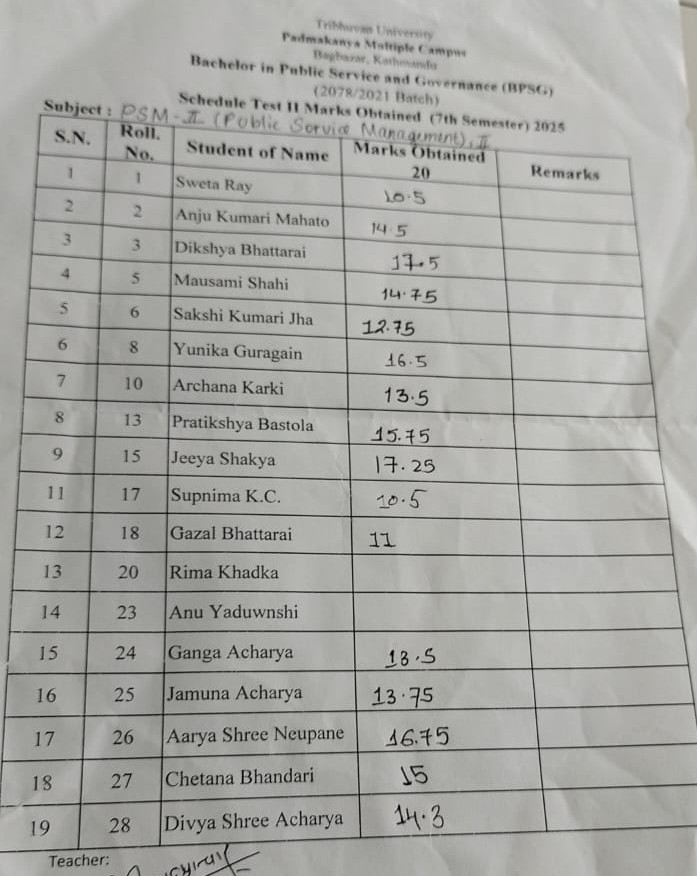 Tribhuvan University
Padmakanya Multiple Campus
Bagbazar, Kathmandu
Bachelor in Public Service and Governance (BPSG)
(2078/2021 Batch)
Schedule Test II Marks Obtained (7th Semester) 2025
Subject : PSM-II (Public Service Management), II
S.N. Roll. No. Student of Name Marks Obtained 20 Remarks
1 1 Sweta Ray 10.5
2 2 Anju Kumari Mahato 14.5
3 3 Dikshya Bhattarai 17.5
4 5 Mausami Shahi 14.75
5 6 Sakshi Kumari Jha 12.75
6 8 Yunika Guragain 16.5
7 10 Archana Karki 13.5
8 13 Pratikshya Bastola 15.75
9 15 Jeeya Shakya 17.25
11 17 Supnima K.C. 10.5
12 18 Gazal Bhattarai 11
13 20 Rima Khadka
14 23 Anu Yaduwnshi
15 24 Ganga Acharya 13.5
16 25 Jamuna Acharya 13.75
17 26 Aarya Shree Neupane 16.75
18 27 Chetana Bhandari 15
19 28 Divya Shree Acharya 14.3
Teacher: